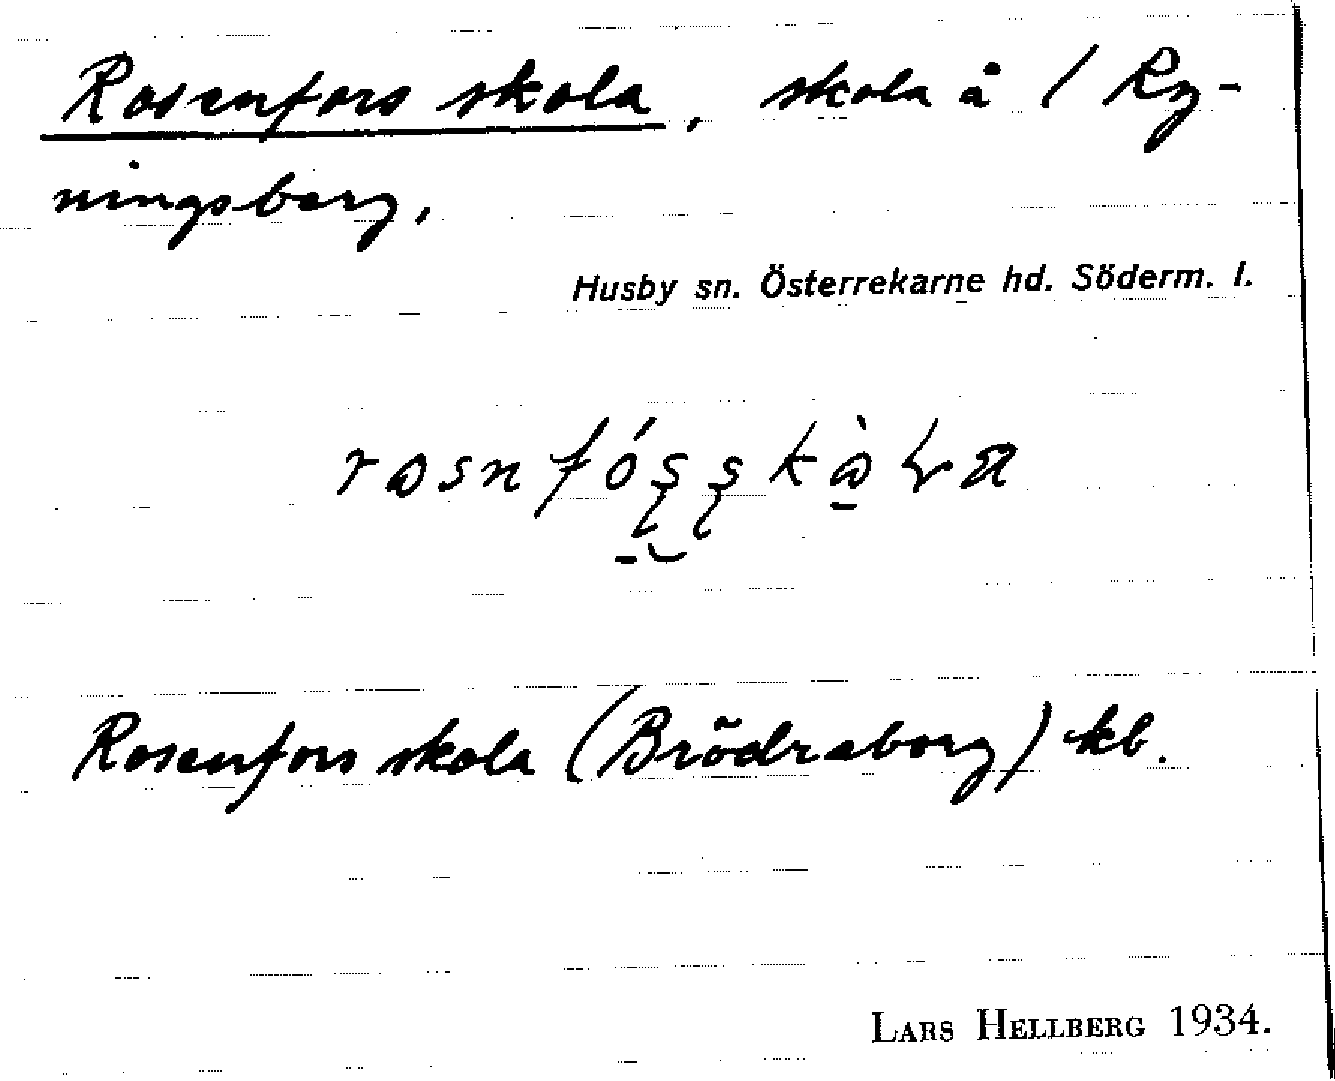 Rosenfors skola, skola å / Ry-
ningsberg,
Husby sn. Österrekarne hd. Söderm. l.
Rosenfors skola (Brödraborg) kb.
LARS HELLBERG 1934.